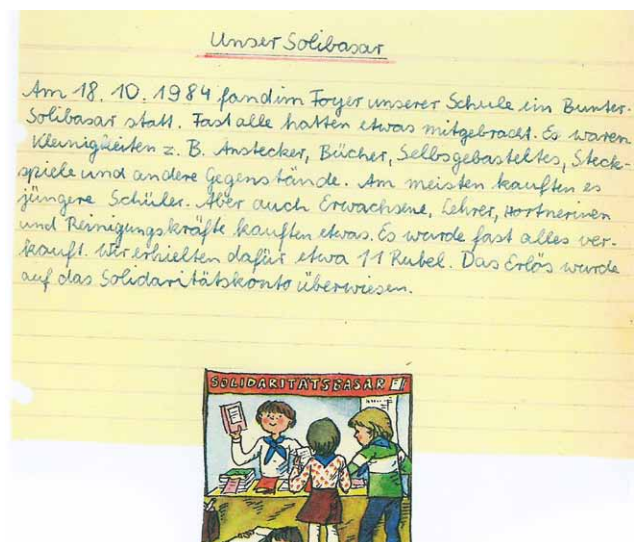 Unser Solibasar
Am 18. 10. 1984 fand im Foyer unserer Schule ein Bunter-
Solibasar statt. Fast alle hatten etwas mitgebracht. Es waren
Kleinigkeiten z. B. Anstecker, Bücher, Selbsgebasteltes, Steck-
spiele und andere Gegenstände. Am meisten kauften es
jüngere Schüler. Aber auch Erwachsene, Lehrer, Hortnerinen
und Reinigungskräfte kauften etwas. Es wurde fast alles ver-
kauft. Wir erhielten dafür etwa 11 Rubel. Das Erlös wurde
auf das Solidaritätskonto überwiesen.
SOLIDARITÄTSBASAR